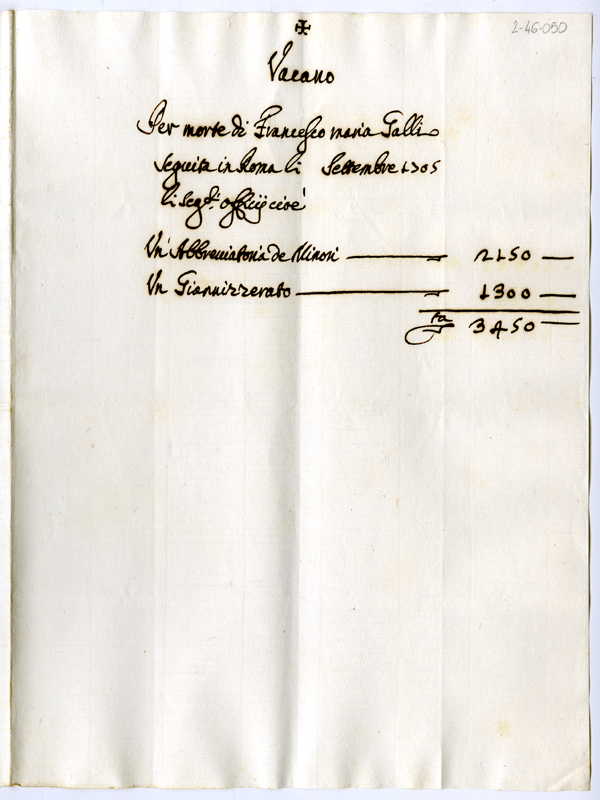 ✠
2-46-050
Vacano
Per morte di Francesco maria Galli
seguita in Roma li Settembre 1705
li segt.i officij cioè
Un' Abbreviatoria de Minori 2150
Un Giannizzerato 1300
3450